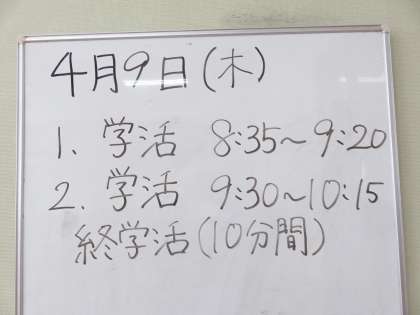 4月9日(木)
1. 学活 8:35～9:20
2. 学活 9:30～10:15
終学活(10分間)